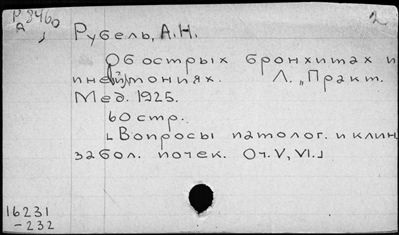 Рубель, А.Н.
2
Об острых бронхитах и
пневмониях. Л. „Практ.
Мед. 1925.
60 стр.
[Вопросы патолог. и клин.
забол. почек. Оч. V, VI.]
16231
-232